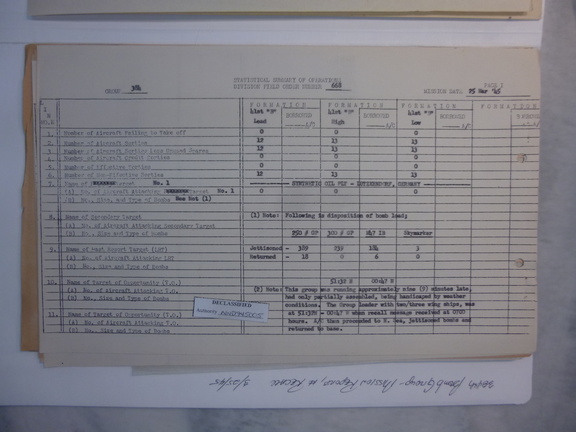 STATISTICAL SUMMARY OF OPERATIONS
DIVISION FIELD ORDER NUMBER 668
GROUP 384
PAGE 1
MISSION DATE 25 Mar '45
FORMATION FORMATION FORMATION FORMATION
41st "B" 41st "B" 41st "B"
Lead High Low
BORROWED BORROWED BORROWED
1. Number of Aircraft Failing to take off 0 0 0
2. Number of Aircraft Sorties 12 13 13
3. Number of Aircraft Sorties Less Unused Spares 12 13 13
4. Number of Aircraft Credit Sorties 0 0 0
5. Number of Effective Sorties 0 0 0
6. Number of Non-Effective Sorties 12 13 13
7. Name of Target No. 1 SYNTHETIC OIL GERMANY
(a) No. of Aircraft Attacking Target No. 1 0 0 0
(b) No. Size, and Type of Bombs See Not (1)
8. Name of Secondary Target (1) Note: Following is disposition of bomb load;
(a) No. of Aircraft Attacking Secondary Target
(b) No. Size and Type of Bombs 250 # GP 300 # GP M47 IB Skymarker
9. Name of Last Resort Target (LRT) Jettisoned - 389 239 184 3
(a) No. of Aircraft Attacking LRT Returned - 18 0 6 0
(b) No. Size and Type of Bombs
10. Name of Target of Opportunity (T.O.) 51:32 N 00:47 W
(a) No. of Aircraft Attacking T.O. (2) Note: This group was running approximately nine (9) minutes late,
(b) No. Size and Type of Bombs had only partially assembled, being handicaped by weather
conditions. The Group leader with two/three wing ships, was
11. Name of Target of Opportunity (T.O.) at 51:32N - 00:47 W when recall message received at 0720
(a) No. of Aircraft Attacking T.O. hours. A/C then proceeded to N. Sea, jettisoned bombs and
(b) No. Size and Type of Bombs returned to base.
DECLASSIFIED
Authority
384th Bomb Group - Mission Reports, # Recall 3/25/45